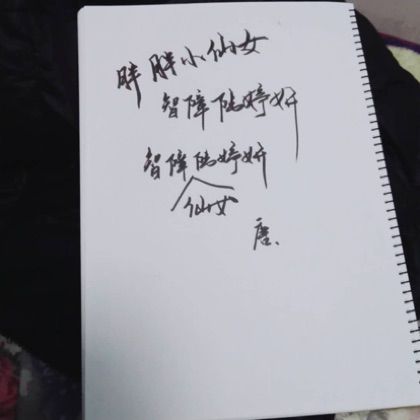 胖胖小仙女
智障陆婷妍
智障陆婷妍
仙女
唐、